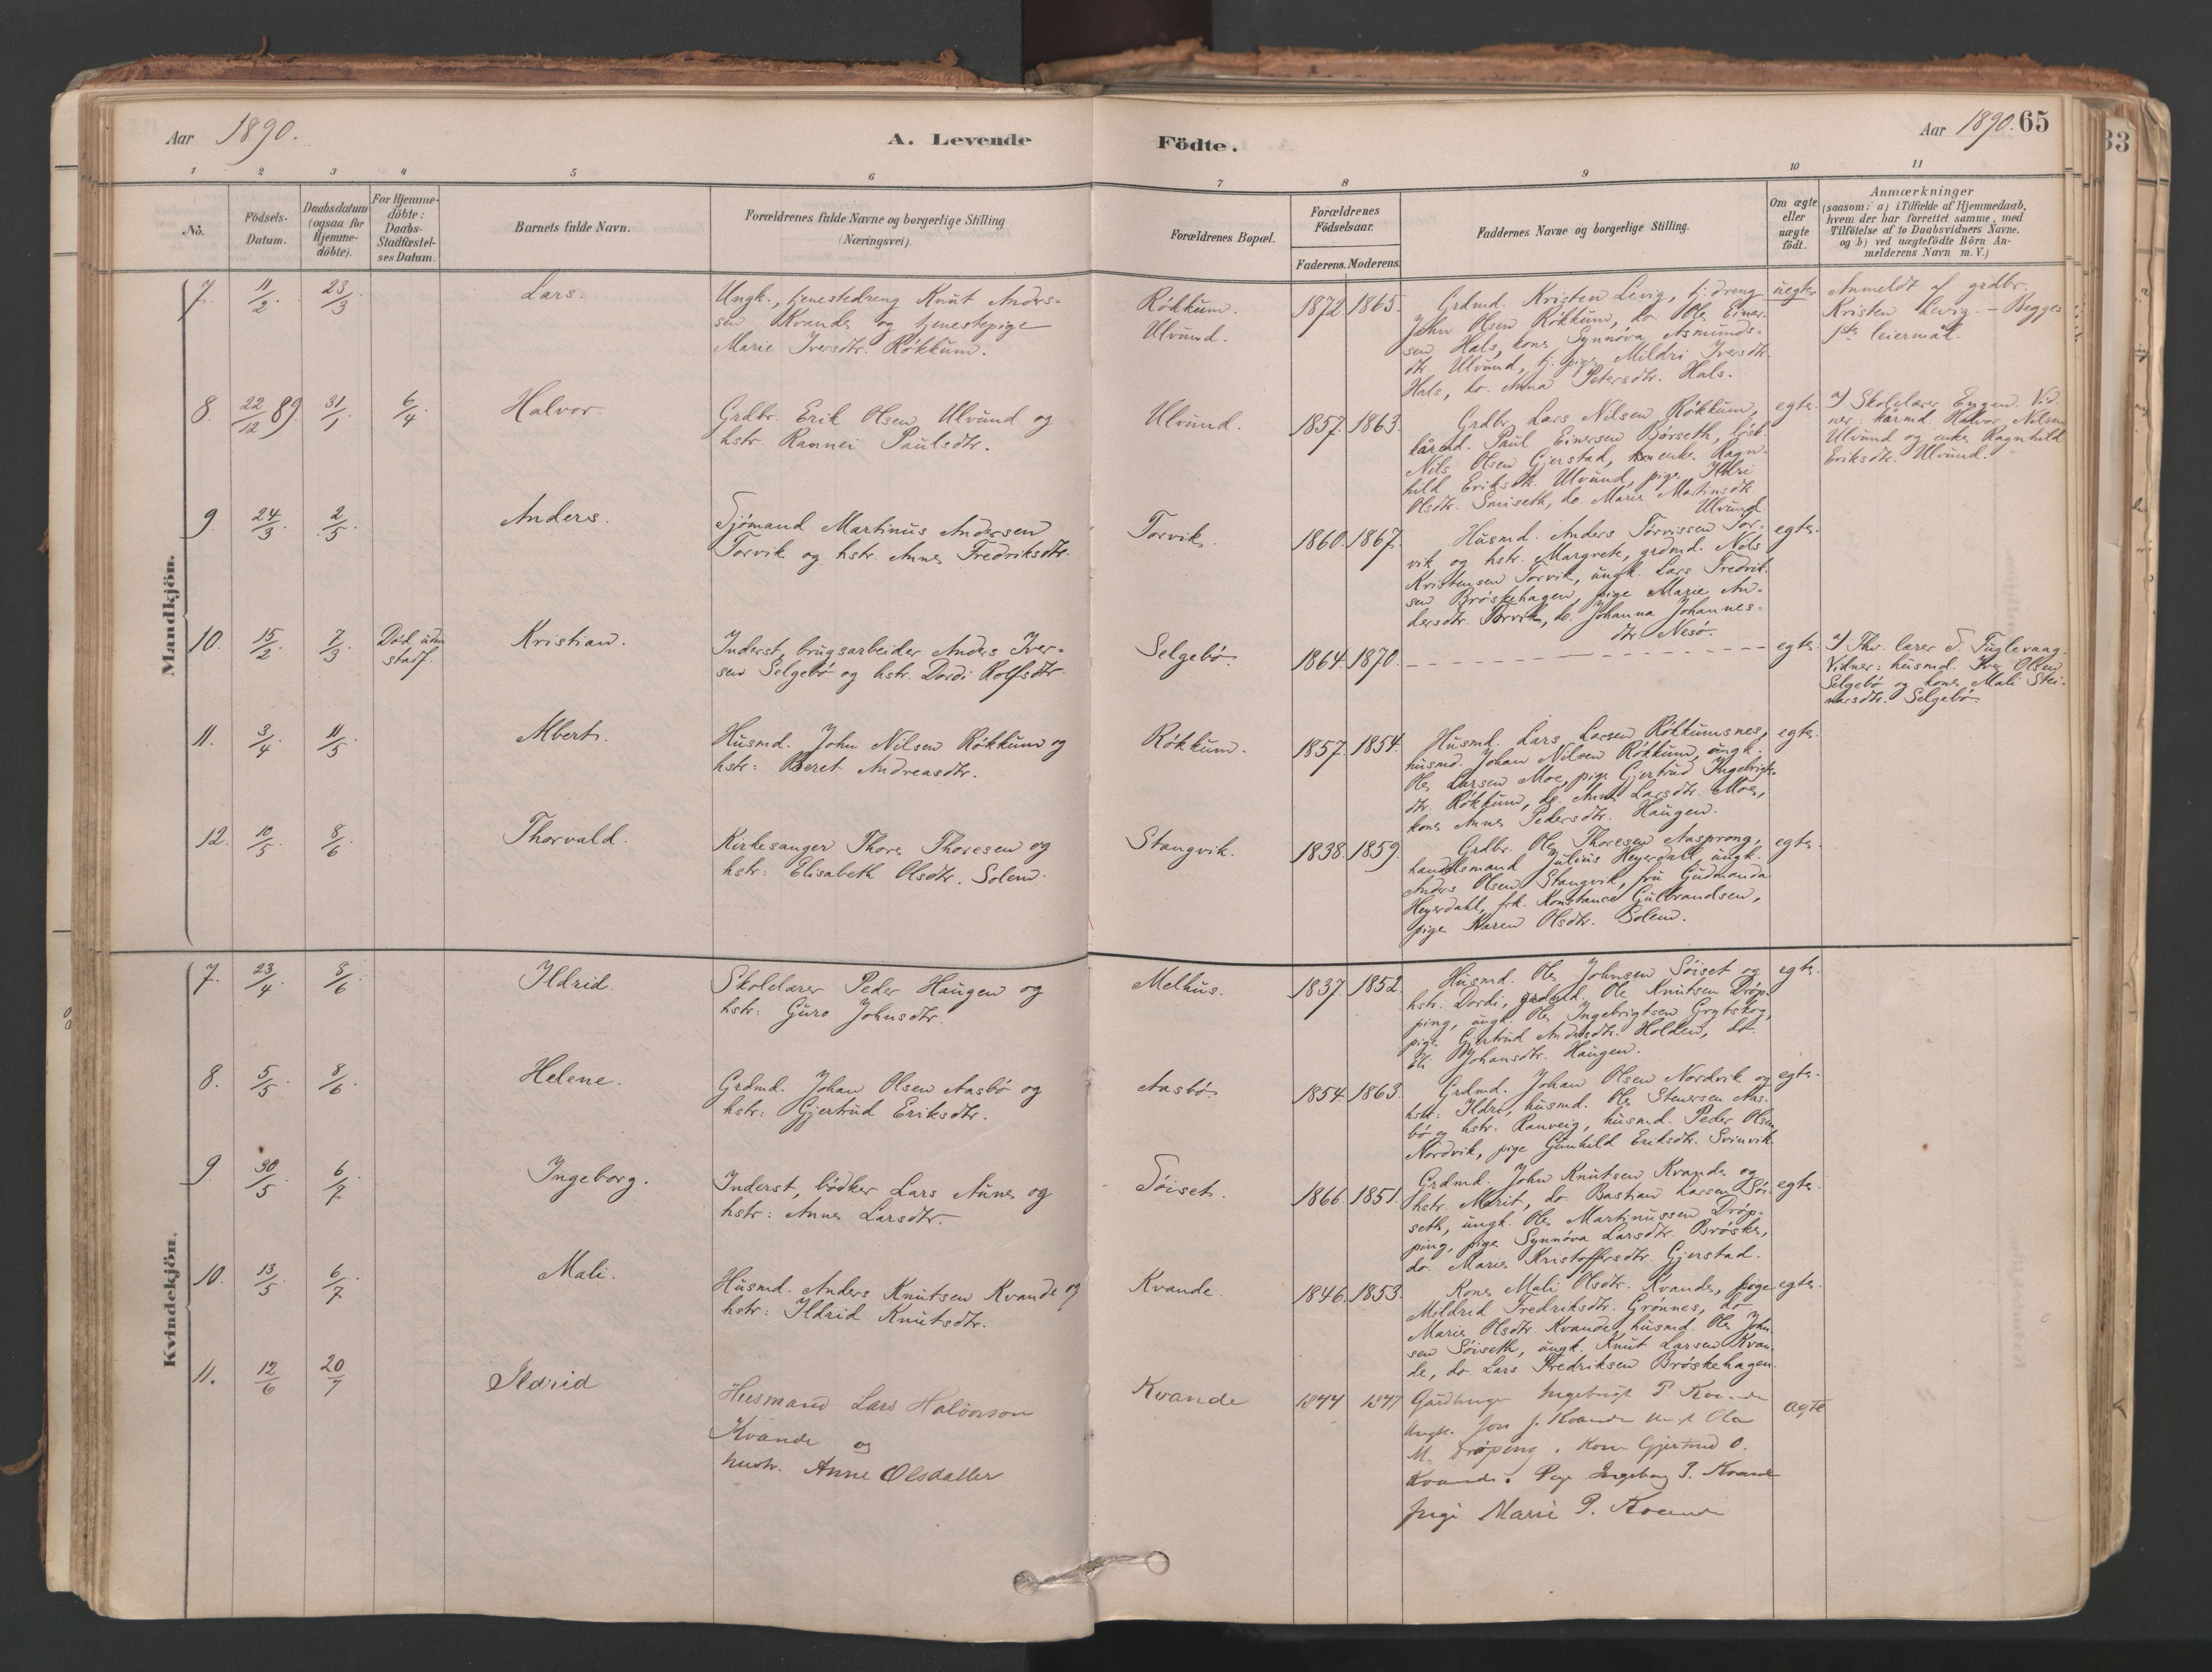 Aar 1890.
A. Levende
Födte.
Aar 1890. 65
33
1 2 3 4 5 6 7 8 9 10 11
No.
Födsels-
Datum.
Daabsdatum
(ogsaa for
Hjemme-
döbte).
For Hjemme-
döbte:
Daabs-
Stadfæstel-
ses Datum.
Barnets fulde Navn.
Forældrenes fulde Navne og borgerlige Stilling
(Næringsvei).
Forældrenes Bopæl.
Forældrenes
Födselsaar.
Faderens. Moderens.
Faddernes Navne og borgerlige Stilling.
Om ægte
eller
uægte
födt.
Anmærkninger
(saasom: a) i Tilfælde af Hjemmedaab,
hvem der har forrettet samme, med
Tilföielse af to Daabsvidners Navne.
og b) ved uægtefödte Börn An-
melderens Navn m. V.)
Mandkjön.
7. 11/2. 23/3. Lars.
Ungk., tjenestedreng Knut Anders-
sen Kvande og tjenestepige
Marie Iversdtr. Røkkum.
Røkkum.
Ulvund.
1872. 1865.
Grdmd. Kristen Levig, tj. dreng
John Olsen Røkkum, do Ole Einer-
sen Hals, kone Synnøva Asmunds-
dtr. Ulvund, tj. pige Mildri Iversdtr.
Hals, do. Anna Petersdtr. Hals.
uegte
Anmeldt af grdbr.
Kristen Levig. - Begges
1ste leiermål.
8. 22/12 89. 31/1. 6/4. Halvor.
Grdbr. Erik Olsen Ulvund og
hstr. Rannei Paulsdtr.
Ulvund.
1857. 1863.
Grdbr. Lars Nilsen Røkkum,
kårmd. Paul Einersen Bjørseth, løsk.
Nils Olsen Gjerstad, enke Ragn-
hild Eriksdtr. Ulvund, pige Ildri
Olsdtr. Smiseth, do Marie Martinsdtr.
Ulvund.
egte.
a) Skolelærer Engen. Vid-
ner: kårmd. Halvor Nilsen
Ulvund og enke Ragnhild
Eriksdtr. Ulvund.
9. 24/3. 2/5. Anders.
Sjømand Martinus Andersen
Torvik og hstr. Anne Fredriksdtr.
Torvik.
1860. 1867.
Husmd. Anders Torvissen Tor-
vik og hstr. Margrete, grdmd. Nils
Kristensen Torvik, ungk. Lars Fredrik-
sen Brøskehagen, pige Marie An-
dersdtr. Torvik, do. Johanna Johannes-
dtr. Nesø.
egte.
10. 15/2. 7/3. Død uden
stadf. Kristian.
Inderst, brugsarbeider Anders Iver-
sen Selgebø og hstr. Dordi Rolfsdtr.
Selgebø.
1864. 1870.
egte.
a) Fhv. lærer S. Fuglevaag.
Vidner: husmd. Iver Olsen
Selgebø og kone Mali Stei-
narsdtr. Selgebø.
11. 3/4. 11/5. Albert.
Husmd. John Nilsen Røkkum og
hstr: Beret Andreasdtr.
Røkkum.
1857. 1854.
Husmd. Lars Larsen Røkkumsnes,
husmd. Johan Nilsen Røkkum, ungk.
Ole Larsen Moe, pige Gjertrud Ingebrigts-
dtr. Røkkum, do. Anne Larsdtr. Moe,
kone Anne Pedersdtr. Haugen.
egte.
12. 10/5. 8/6. Thorvald.
Kirkesanger Thore Thoresen og
hstr: Elisabeth Olsdtr. Solem.
Stangvik.
1838. 1859.
Grdbr. Ole Thoresen Aasprong,
handelsmand Julius Heyerdahl, ungk.
Anders Olsen Stangvik, fru Gudmanda
Heyerdahl, frk. Konstance Gulbrandsen,
pige Karen Olsdtr. Solem.
egte.
Kvindekjön.
7. 23/4. 8/6. Ildrid.
Skolelærer Peder Haugen og
hstr: Guro Johnsdtr.
Melhus.
1837. 1852.
Husmd. Ole Johnsen Søiset og
hstr. Dordi, grdmd. Ole Knutsen Drøp-
ping, ungk. Ole Ingebrigtsen Grytskog,
pige Gjertrud Andersdtr. Holden, do.
Johansdtr. Haugen.
egte.
8. 5/5. 8/6. Helene.
Grdmd. Johan Olsen Aasbø og
hstr: Gjertrud Eriksdtr.
Aasbø.
1854. 1863.
Grdmd. Johan Olsen Nordvik og
hstr: Ildri, husmd. Ole Stenersen Aas-
bø og hstr. Ranveig, husmd. Peder Olsen
Nordvik, pige Gunhild Eriksdtr. Svinvik.
egte.
9. 30/5. 6/7. Ingeborg.
Inderst, bødker Lars Aune og
hstr: Anne Larsdtr.
Søiset.
1866. 1851.
Grdmd. John Knutsen Kvande og
hstr. Marit, do Bastian Larsen Søi-
seth, ungk. Ole Martinussen Drøp-
ping, pige Synnøva Larsdtr. Brøske,
do. Marie Kristoffersdtr. Gjerstad.
egte.
10. 13/5. 6/7. Mali.
Husmd. Anders Knutsen Kvande og
hstr: Ildrid Knutsdtr.
Kvande.
1846. 1853.
Kone Mali Olsdtr. Kvande, pige
Mildrid Fredriksdtr. Grønnes, do
Marie Olsdtr. Kvande, husmd. Ole John-
sen Søiseth, ungk. Knut Larsen Kvan-
de, do. Lars Fredriksen Brøskehagen.
egte.
11. 12/6 20/7 Ildrid
Husmand Lars Halvorson
Kvande og
hustr. Anne Olsdatter
Kvande
1844 1847
Ingebrigt P. Kvande
Ungk. Jon J. Kvande Ola
M. Drøping. Kone Gjertrud O.
Kvande. Pige Ingeborg P. Kvande
pige Marie P. Kvande
ægte